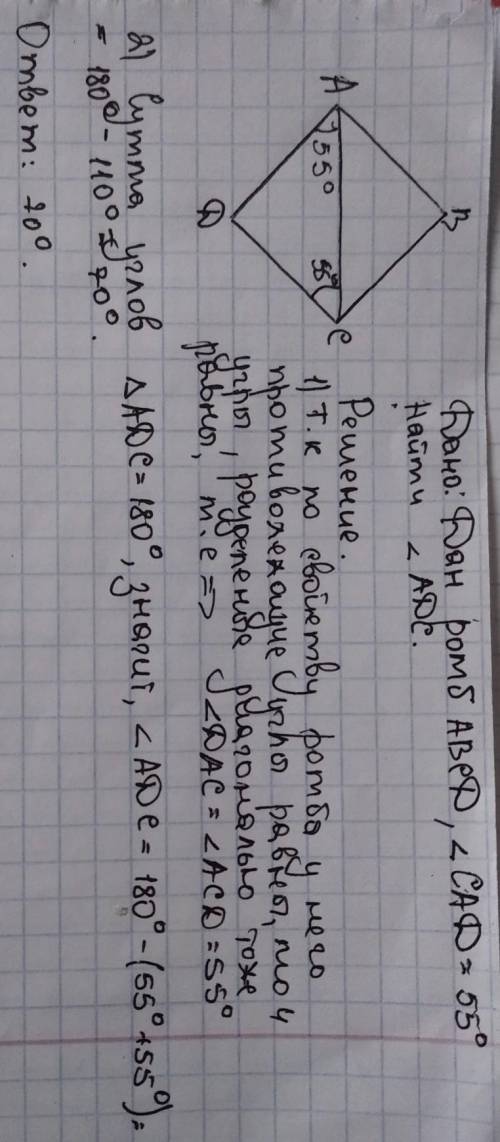 Дано: Дан ромб ABCD, ∠CAD = 55°
Найти ∠ADC.
B
A
55°
55°
C
D
Решение.
1) т.к по свойству ромба у него
противолежащие углы равны, то и
углы, разделеные диагональю тоже
равны, т.е => ∠DAC = ∠ACD = 55°
2) Сумма углов ΔADC = 180°, значит, ∠ADC = 180° - (55° + 55°) =
= 180° - 110° = 70°.
Ответ: 70°.